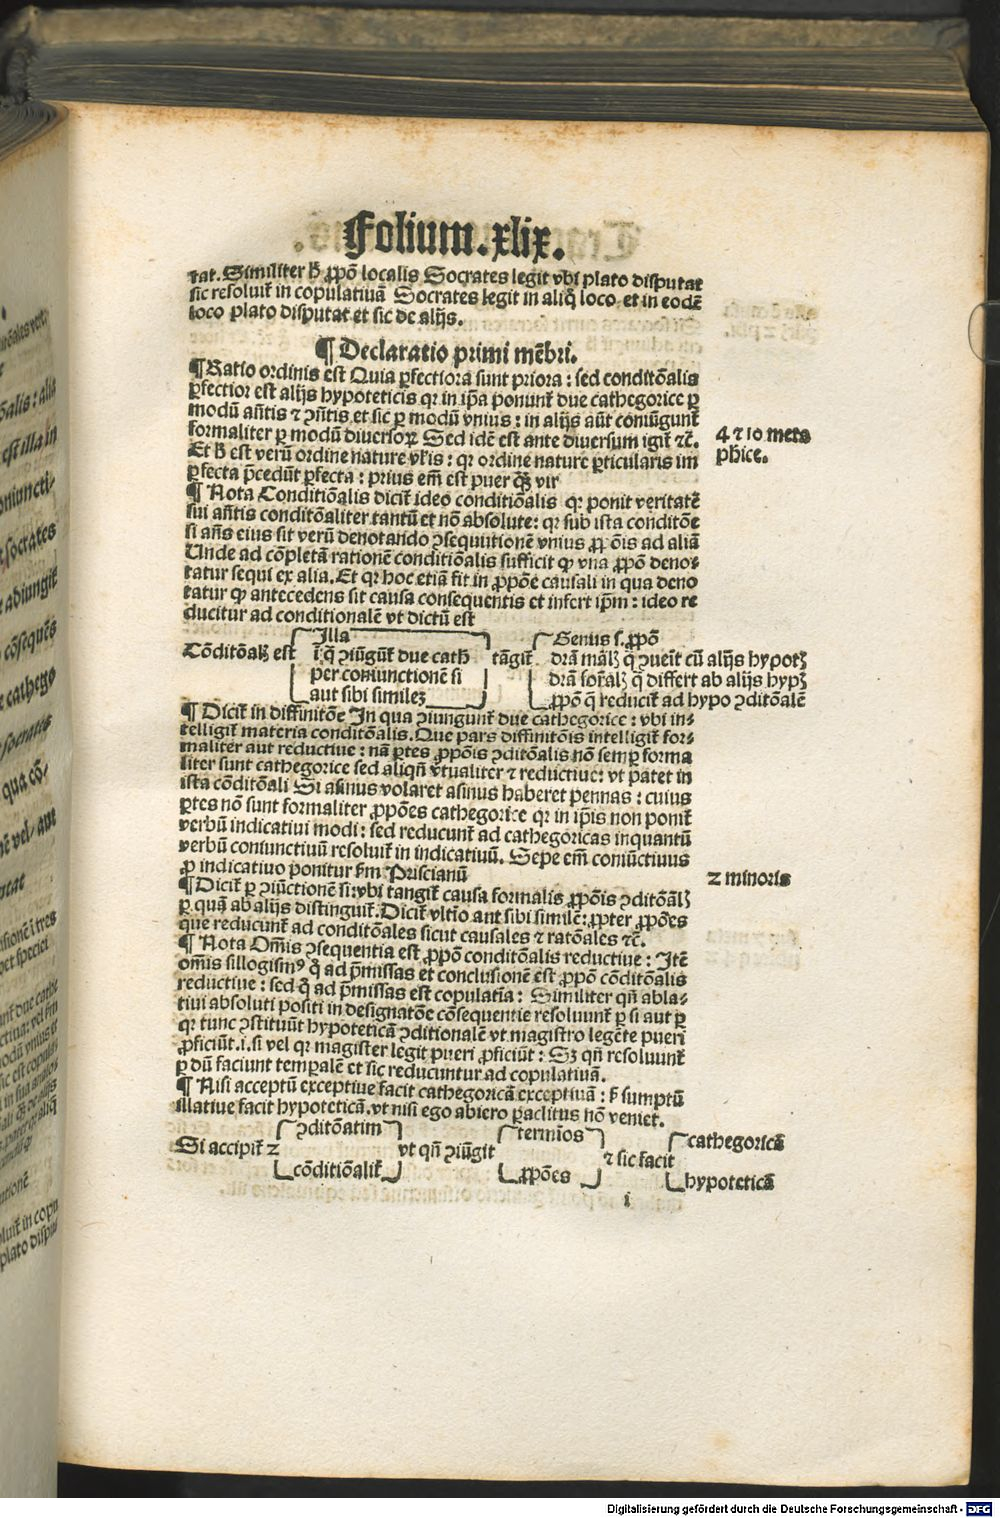 Folium. xlix.
tat. Similiter h̄ ꝓpō localis Socrates legit vbi plato disputat
sic resoluit̄ in copulatiuā Socrates legit in aliq̊ loco et in eodē
loco plato disputat et sic de alijs.
¶ Declaratio primi mēbri.
¶ Ratio ordinis est Quia ꝑfectiora sunt priora : sed conditōalis
ꝑfectior est alijs hypoteticis qꝛ in ip̄a ponunt̄ due cathegorice ꝑ
modū an̄tis ⁊ ꝯn̄tis et sic ꝑ modū vnius : in alijs aūt coniūgunt̄
formaliter ꝑ modū diuersoꝝ Sed idē est ante diuersum igit̄ ⁊c̄.
Et h̄ est verū ordine nature vl̄is : qꝛ ordine nature ꝑticularis im
ꝑfecta p̄cedūt ꝑfecta : prius em̄ est puer qꝫ̄ vir
4 ⁊ 10 meta
phice.
¶ Nota Conditiōalis dicit̄ ideo conditiōalis qꝛ ponit veritatē
sui an̄tis conditōaliter tantū et nō absolute : qꝛ sub ista conditōe
si an̄s eius sit verū denotando ꝯsequutionē vnius ꝓpōis ad aliā
Unde ad cōpletā rationē conditiōalis sufficit ꝙ vna ꝓpō deno-
tatur sequi ex alia. Et qꝛ hoc etiā fit in ꝓpōe causali in qua deno
tatur ꝙ antecedens sit causa consequentis et infert ip̄m : ideo re
ducitur ad conditionalē vt dictū est
Cōditōalꝭ est
Illa
ī q̄ ꝯiūgūt̄ due cath̄
per coniunctionē si
aut sibi similez
tāgit̄
Genus s. ꝓpō
dr̄ām mālꝭ q̄ ꝯueīt cū alijs hypotꝭ
dr̄ām for̄alꝭ q̄ differt ab alijs hypꝭ
ꝓpō q̄ reducit̄ ad hypo ꝯditōalē
¶ Dicit̄ in diffinitōe In qua ꝯiungunt̄ due cathegorice : vbi in-
telligit̄ materia conditōalis. Que pars diffinitōis intelligit̄ for-
maliter aut reductiue : nā ꝑtes ꝓpōis ꝯditōalis nō semꝑ forma
liter sunt cathegorice sed aliqn̄ v̄tualiter ⁊ reductiue : vt patet in
ista cōditōali Si asinus volaret asinus haberet pennas : cuius
ꝑtes nō sunt formaliter ꝓpōes cathegorice qꝛ in ip̄is non ponit̄
verbū indicatiui modi : sed reducunt̄ ad cathegoricas inquantū
verbū coniunctiuū resoluit̄ in indicatiuū. Sepe em̄ coniūctiuus
ꝓ indicatiuo ponitur ẜm Priscianū
2 minoris
¶ Dicit̄ ꝑ ꝯiūctionē si : vbi tangit̄ causa formalis ꝓpōis ꝯditōālꝭ
ꝑ quā ab alijs distinguit̄. Dicit̄ vltīo aut sibi similē : ꝓpter ꝓpōes
que reducunt̄ ad conditōales sicut causales ⁊ ratōales ⁊c̄.
¶ Nota Om̄is ꝯsequentia est ꝓpō conditōalis reductiue : Itē
om̄is sillogismꝰ q̊ ad p̄missas et conclusionē est ꝓpō cōditōalis
reductiue : sed q̊ ad p̄missas est copulatīa : Similiter qn̄ abla-
tiui absoluti positi in designatōe cōsequentie resoluunt̄ ꝑ si aut ꝑ
qꝛ tunc ꝯstituūt hypoteticā ꝯditionalē vt magistro legēte pueri
ꝓficiūt .i. si vel qꝛ magister legit pueri ꝓficiūt : Sꝫ qn̄ resoluunt̄
ꝑ dū faciunt temꝑalē et sic reducuntur ad copulatiuā.
¶ Nisi acceptū exceptiue facit cathegoricā exceptiuā : ẜ sumptū
illatiue facit hypoteticā. vt nisi ego abiero ꝑaclitus nō veniet.
Si accipit̄ 2
ꝯditōatim
cōditiōalit̄
vt qn̄ ꝯiūgit
termīos
ꝓpōes
⁊ sic facit
cathegoricā
hypoteticā
i
Digitalisierung gefördert durch die Deutsche Forschungsgemeinschaft - DFG